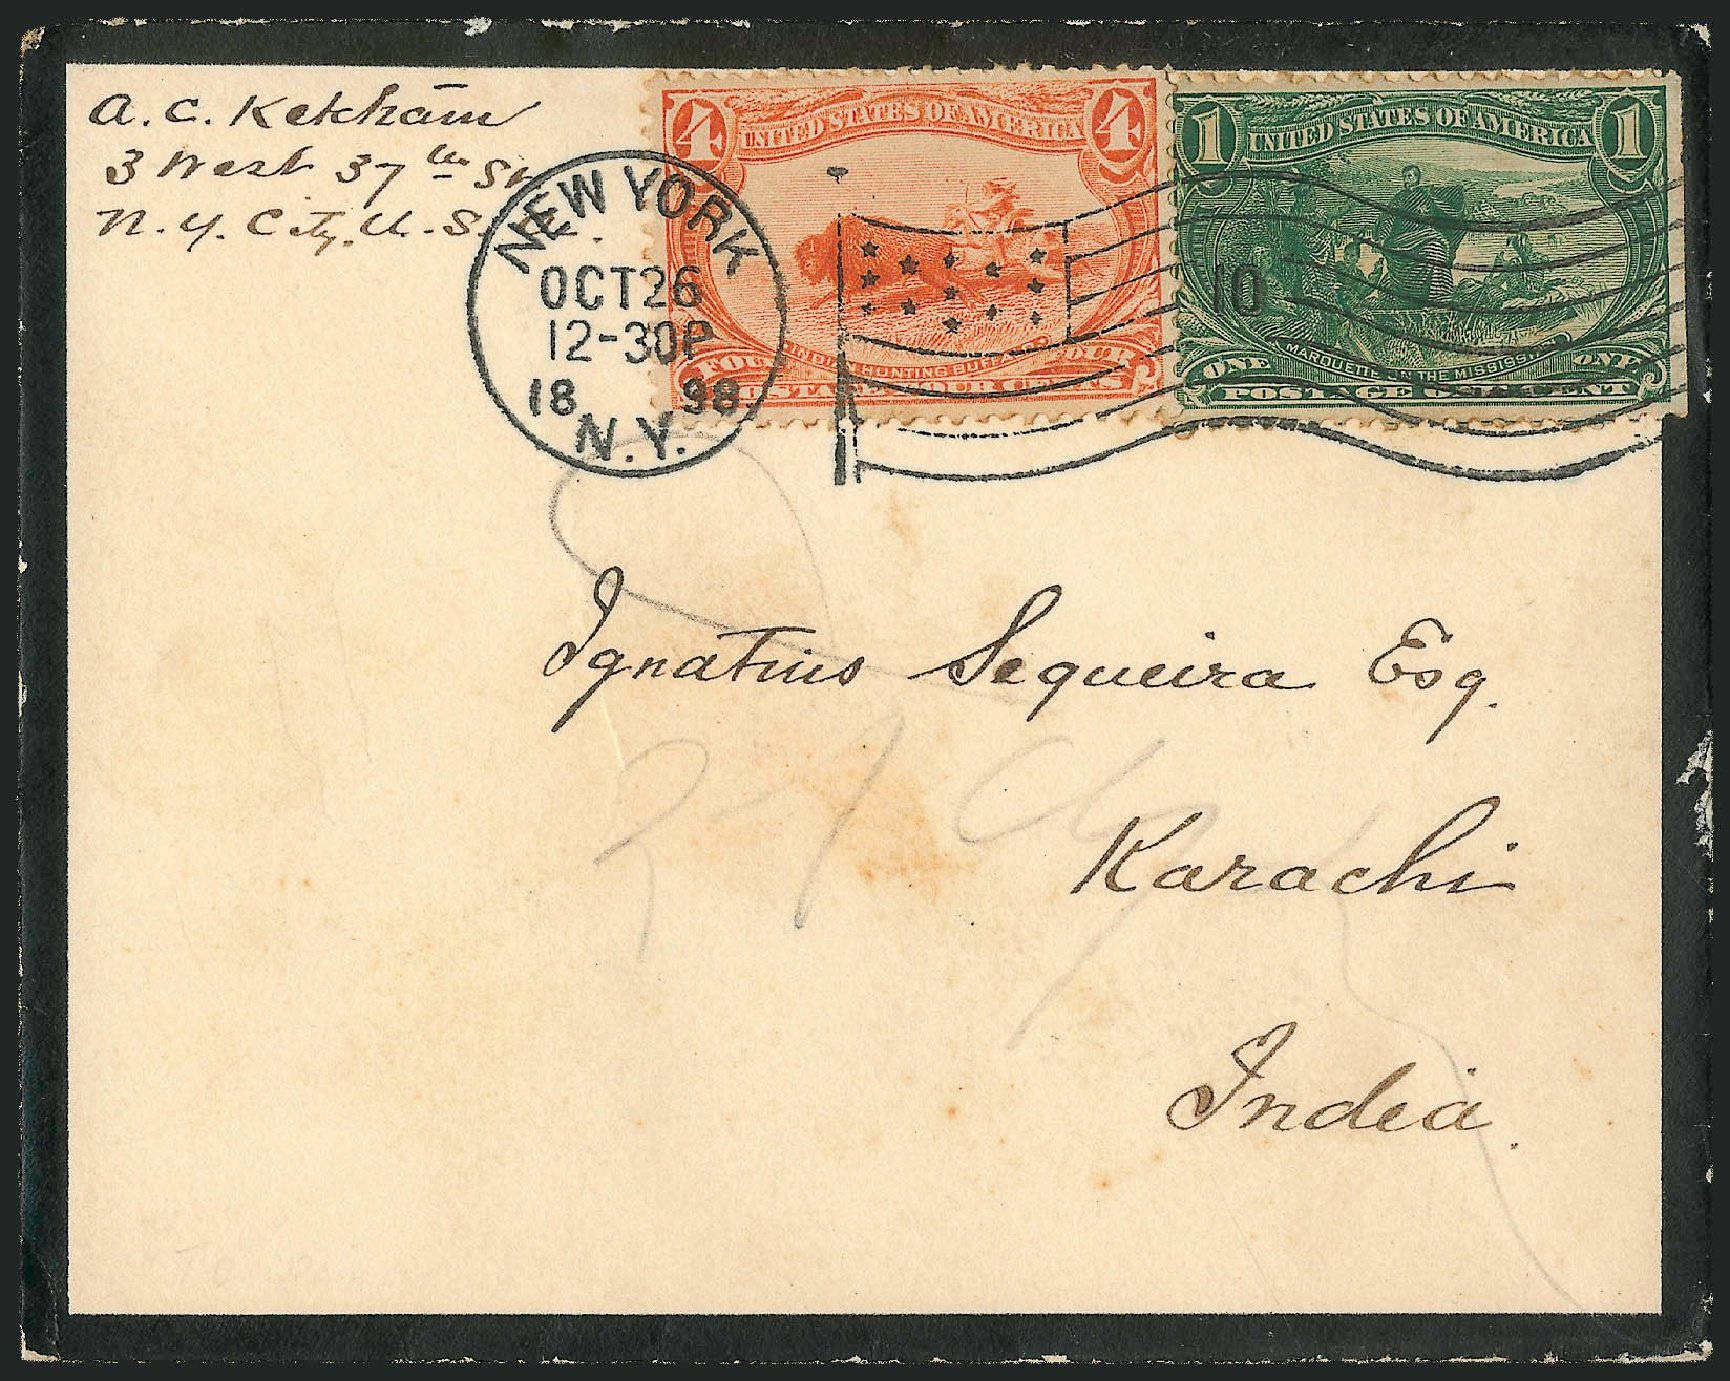 A. C. Ketcham
3 West 37th St
N. Y. City. U. S.
NEW YORK
OCT 26
12-30P
18 98
N.Y.
4 UNITED STATES OF AMERICA 4
HUNTING BUFFALO
FOUR FOUR
POSTAGE FOUR CENTS
1 UNITED STATES OF AMERICA 1
10
MARQUETTE ON THE MISSISSIPPI
ONE ONE
POSTAGE ONE CENT
Ignatius Sequeira Esq.
Karachi
India.